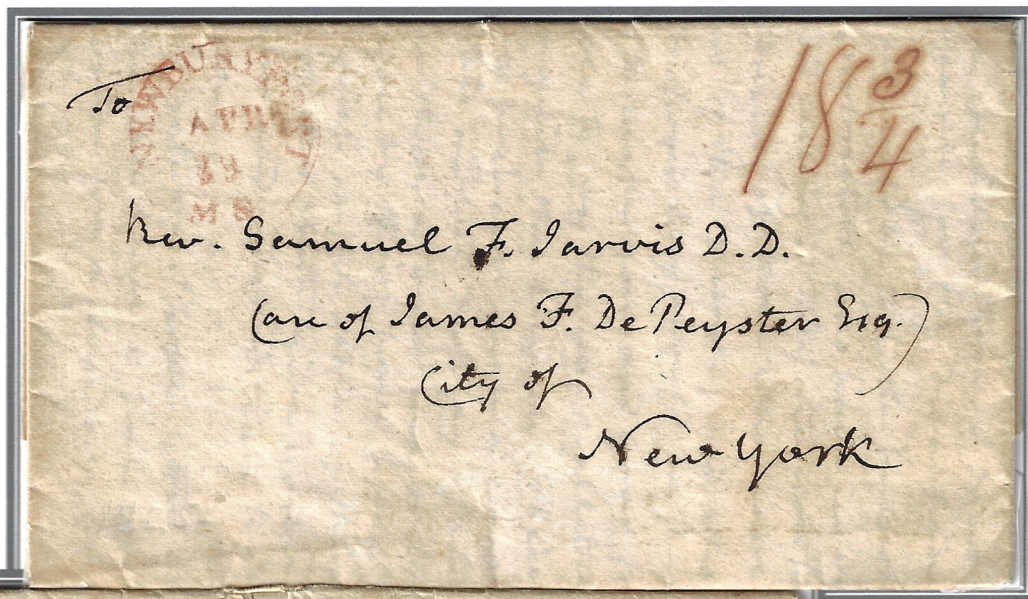 To
NEWBURYPORT
APR
19
MS
18 3/4
Rev. Samuel F. Jarvis D.D.
(are of James F. De Peyster Esq.)
City of
New York